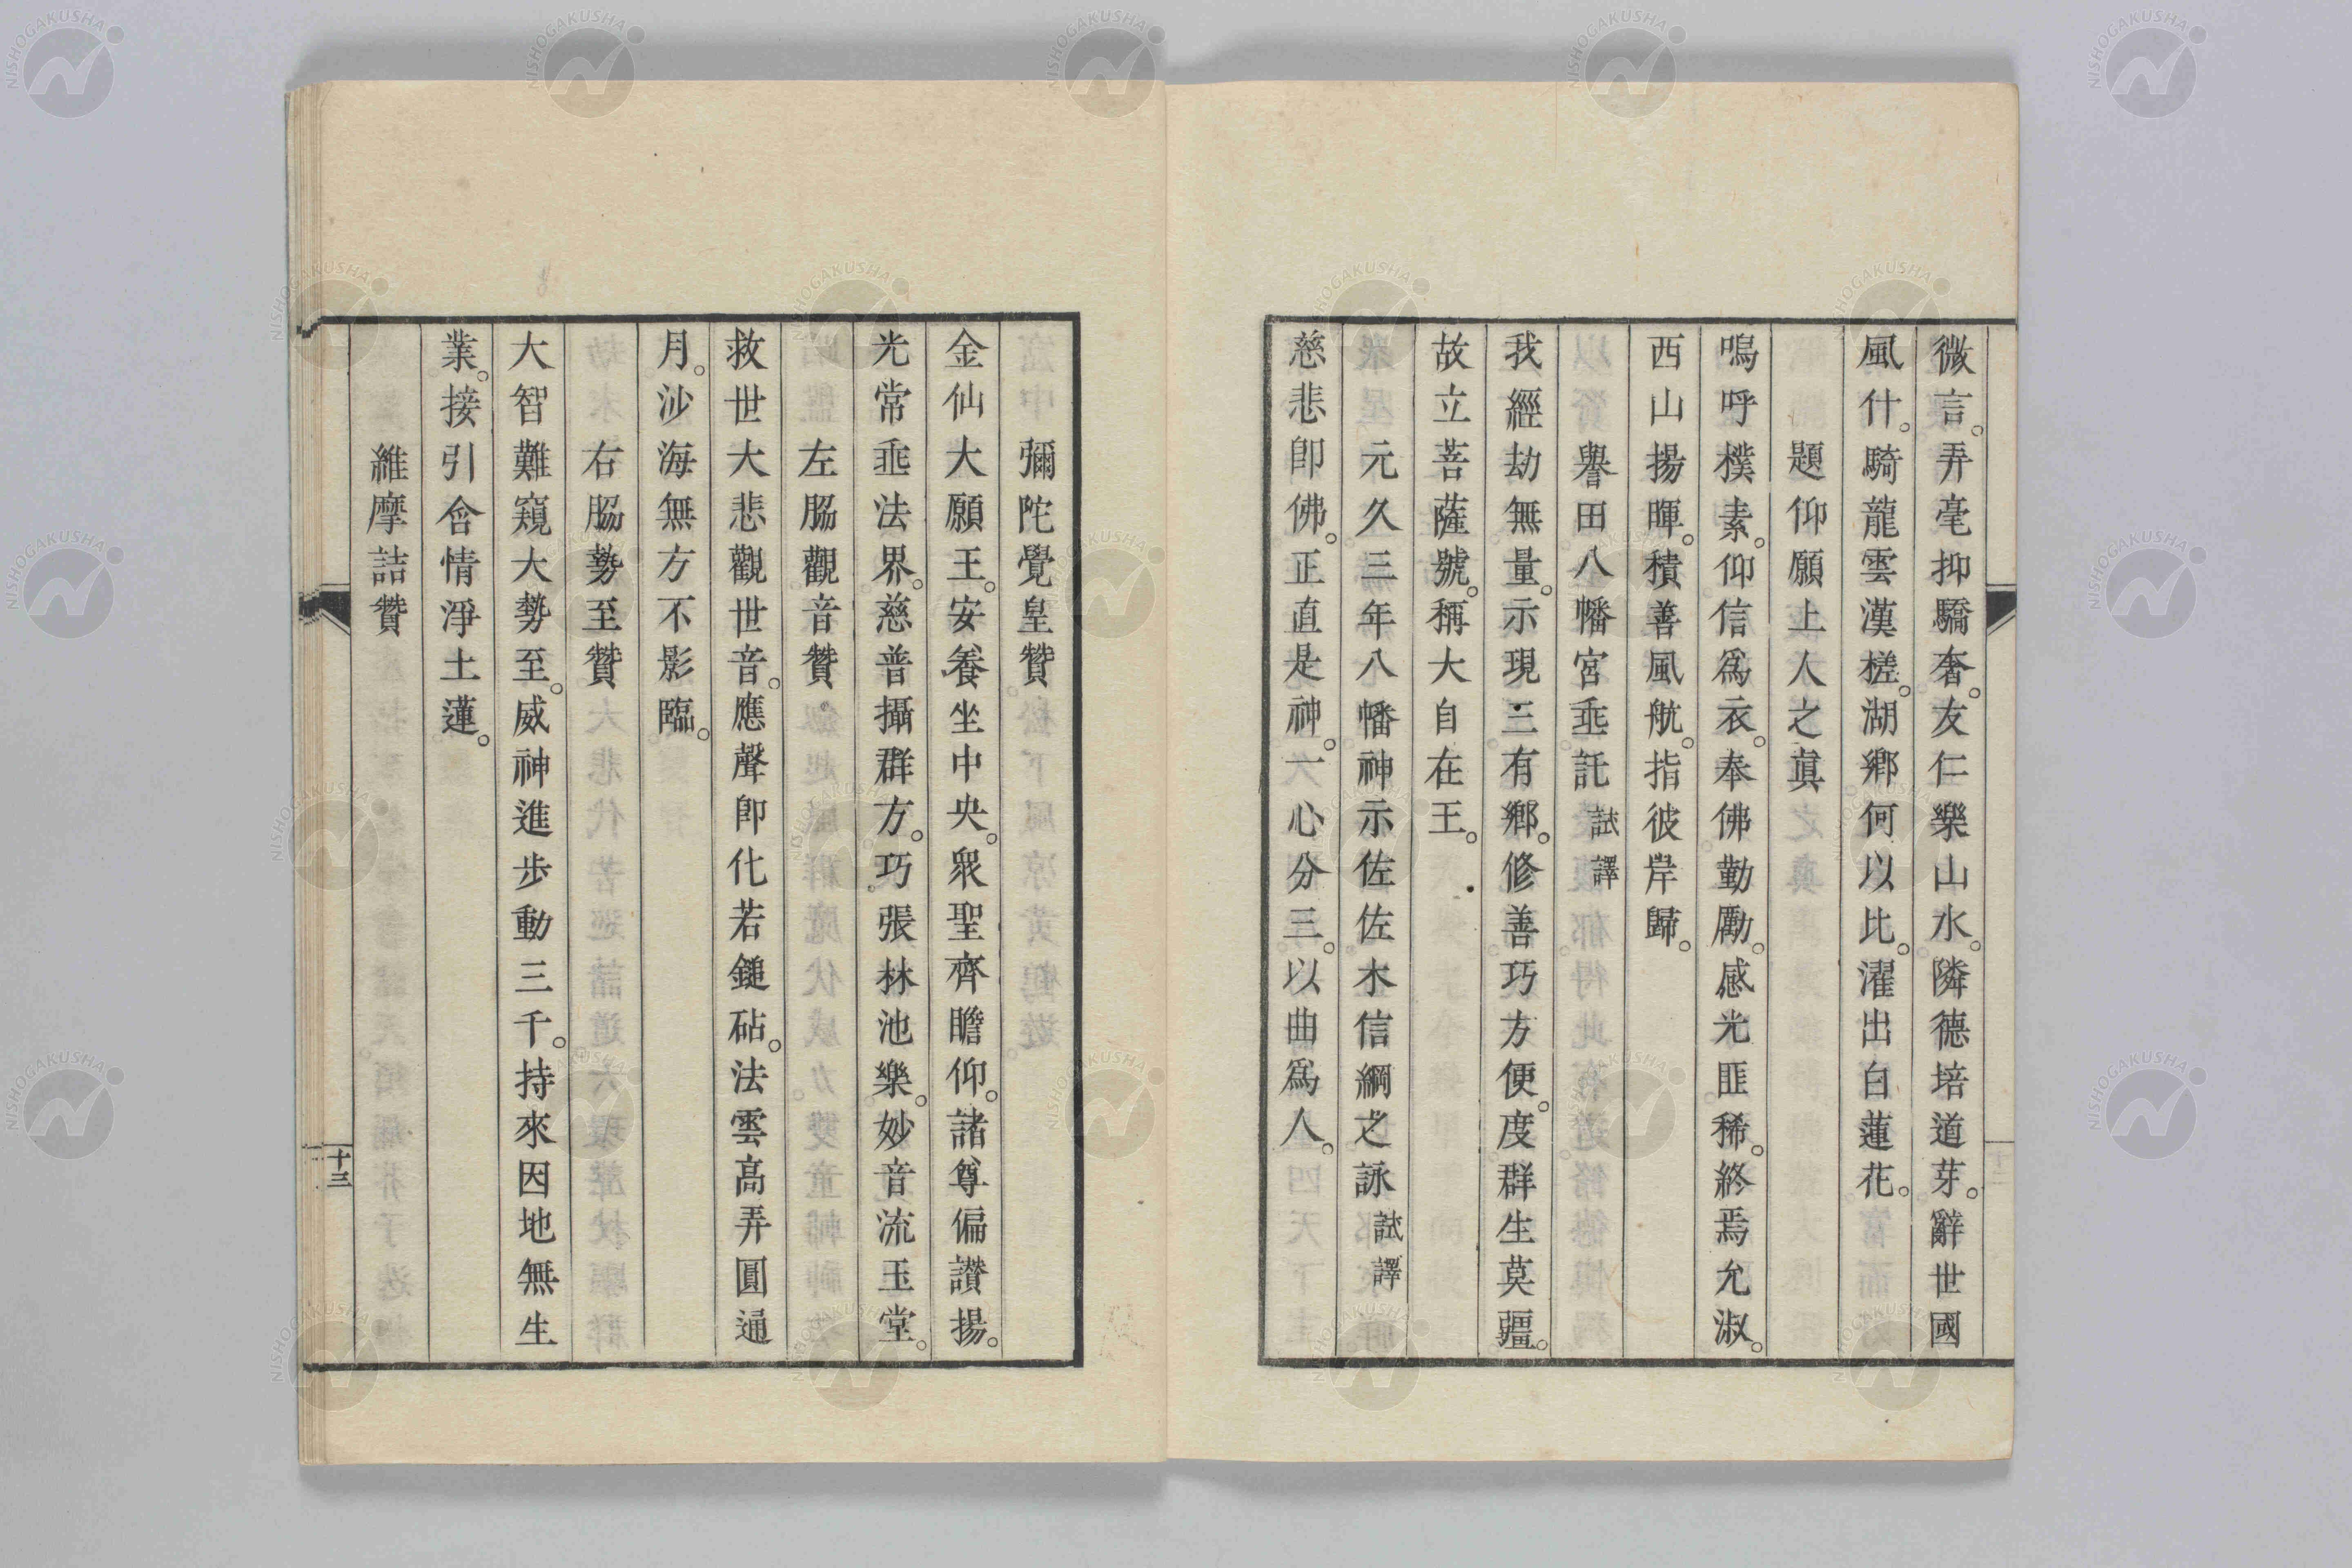 微言。弄毫抑驕奢。友仁樂山水。隣德培道芽。辭世國
風什。騎龍雲漢槎。湖鄉何以比。濯出白蓮花。
題仰願上人之眞
嗚呼樸素。仰信爲衣。奉佛勤勵。感光匪稀。終焉允淑。
西山揚暉。積善風航。指彼岸歸。
譽田八幡宮垂託 試譯
我經劫無量。示現三有鄉。修善巧方便。度群生莫疆。
故立菩薩號。稱大自在王。
元久三年八幡神示佐佐木信綱之詠 試譯
慈悲卽佛。正直是神。一心分三。以曲爲人。
彌陀覺皇贊
金仙大願王。安養坐中央。衆聖齊瞻仰。諸尊偏讚揚。
光常垂法界。慈普攝群方。巧張林池樂。妙音流玉堂。
左脇觀音贊
救世大悲觀世音。應聲卽化若鎚砧。法雲高弄圓通
月。沙海無方不影臨。
右脇勢至贊
大智難窺大勢至。威神進步動三千。持來因地無生
業。接引含情淨土蓮。
維摩詰贊
十三
NISHOGAKUSHA